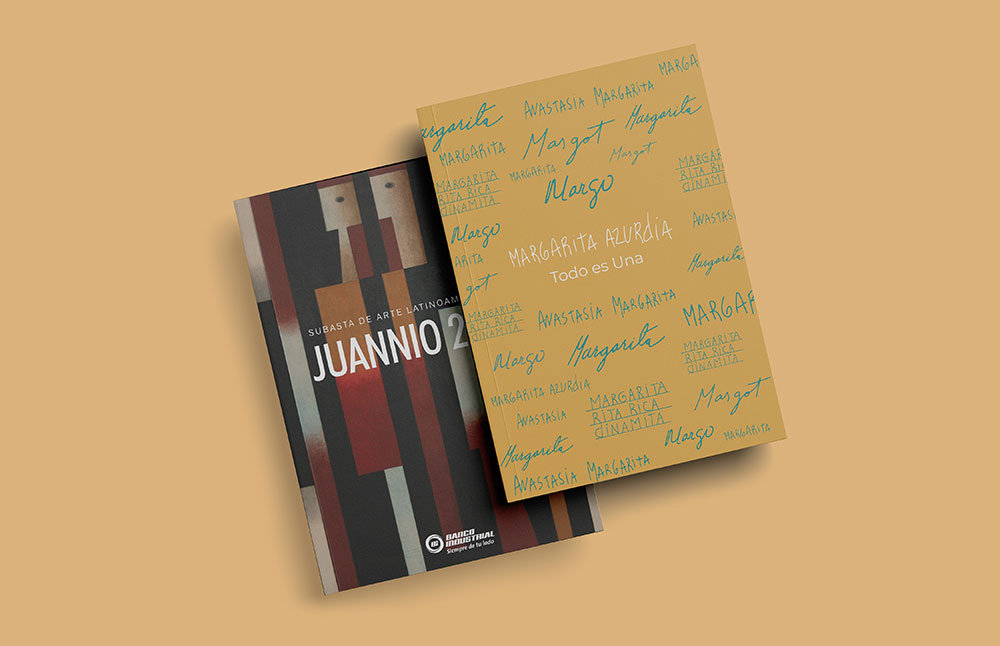 SUBASTA DE ARTE LATINOAM
JUANNIO 2
BANCO
INDUSTRIAL
Siempre de tu lado
MARGA
ANASTASIA MARGARITA
argarita
Margarita
MARGARITA
Margot
Margot
MARGARITA
MARGARITA
RITA RICA
DINAMITA
MARGAR
RITA RICA
DINAMITA
Margo
Margo
ANASTASI
MARGARITA AZURDIA
Todo es Una
ARITA
Margarita
got
ANASTASIA MARGARITA
MARGAR
MARGARITA
RITA RICA
DINAMITA
Margo
Margarita
MARGARITA
RITA RICA
DINAMITA
MARGARITA AZURDIA
MARGARITA
RITA RICA
DINAMITA
Margot
ANASTASIA
Margo
MARGARITA
Margarita
ANASTASIA MARGARITA